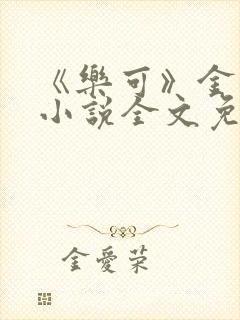 《樂可》金
小說全文免
金愛荣